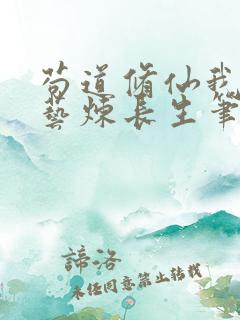 苟道修仙我
藝煉長生筆
諦洛
未经同意禁止转载